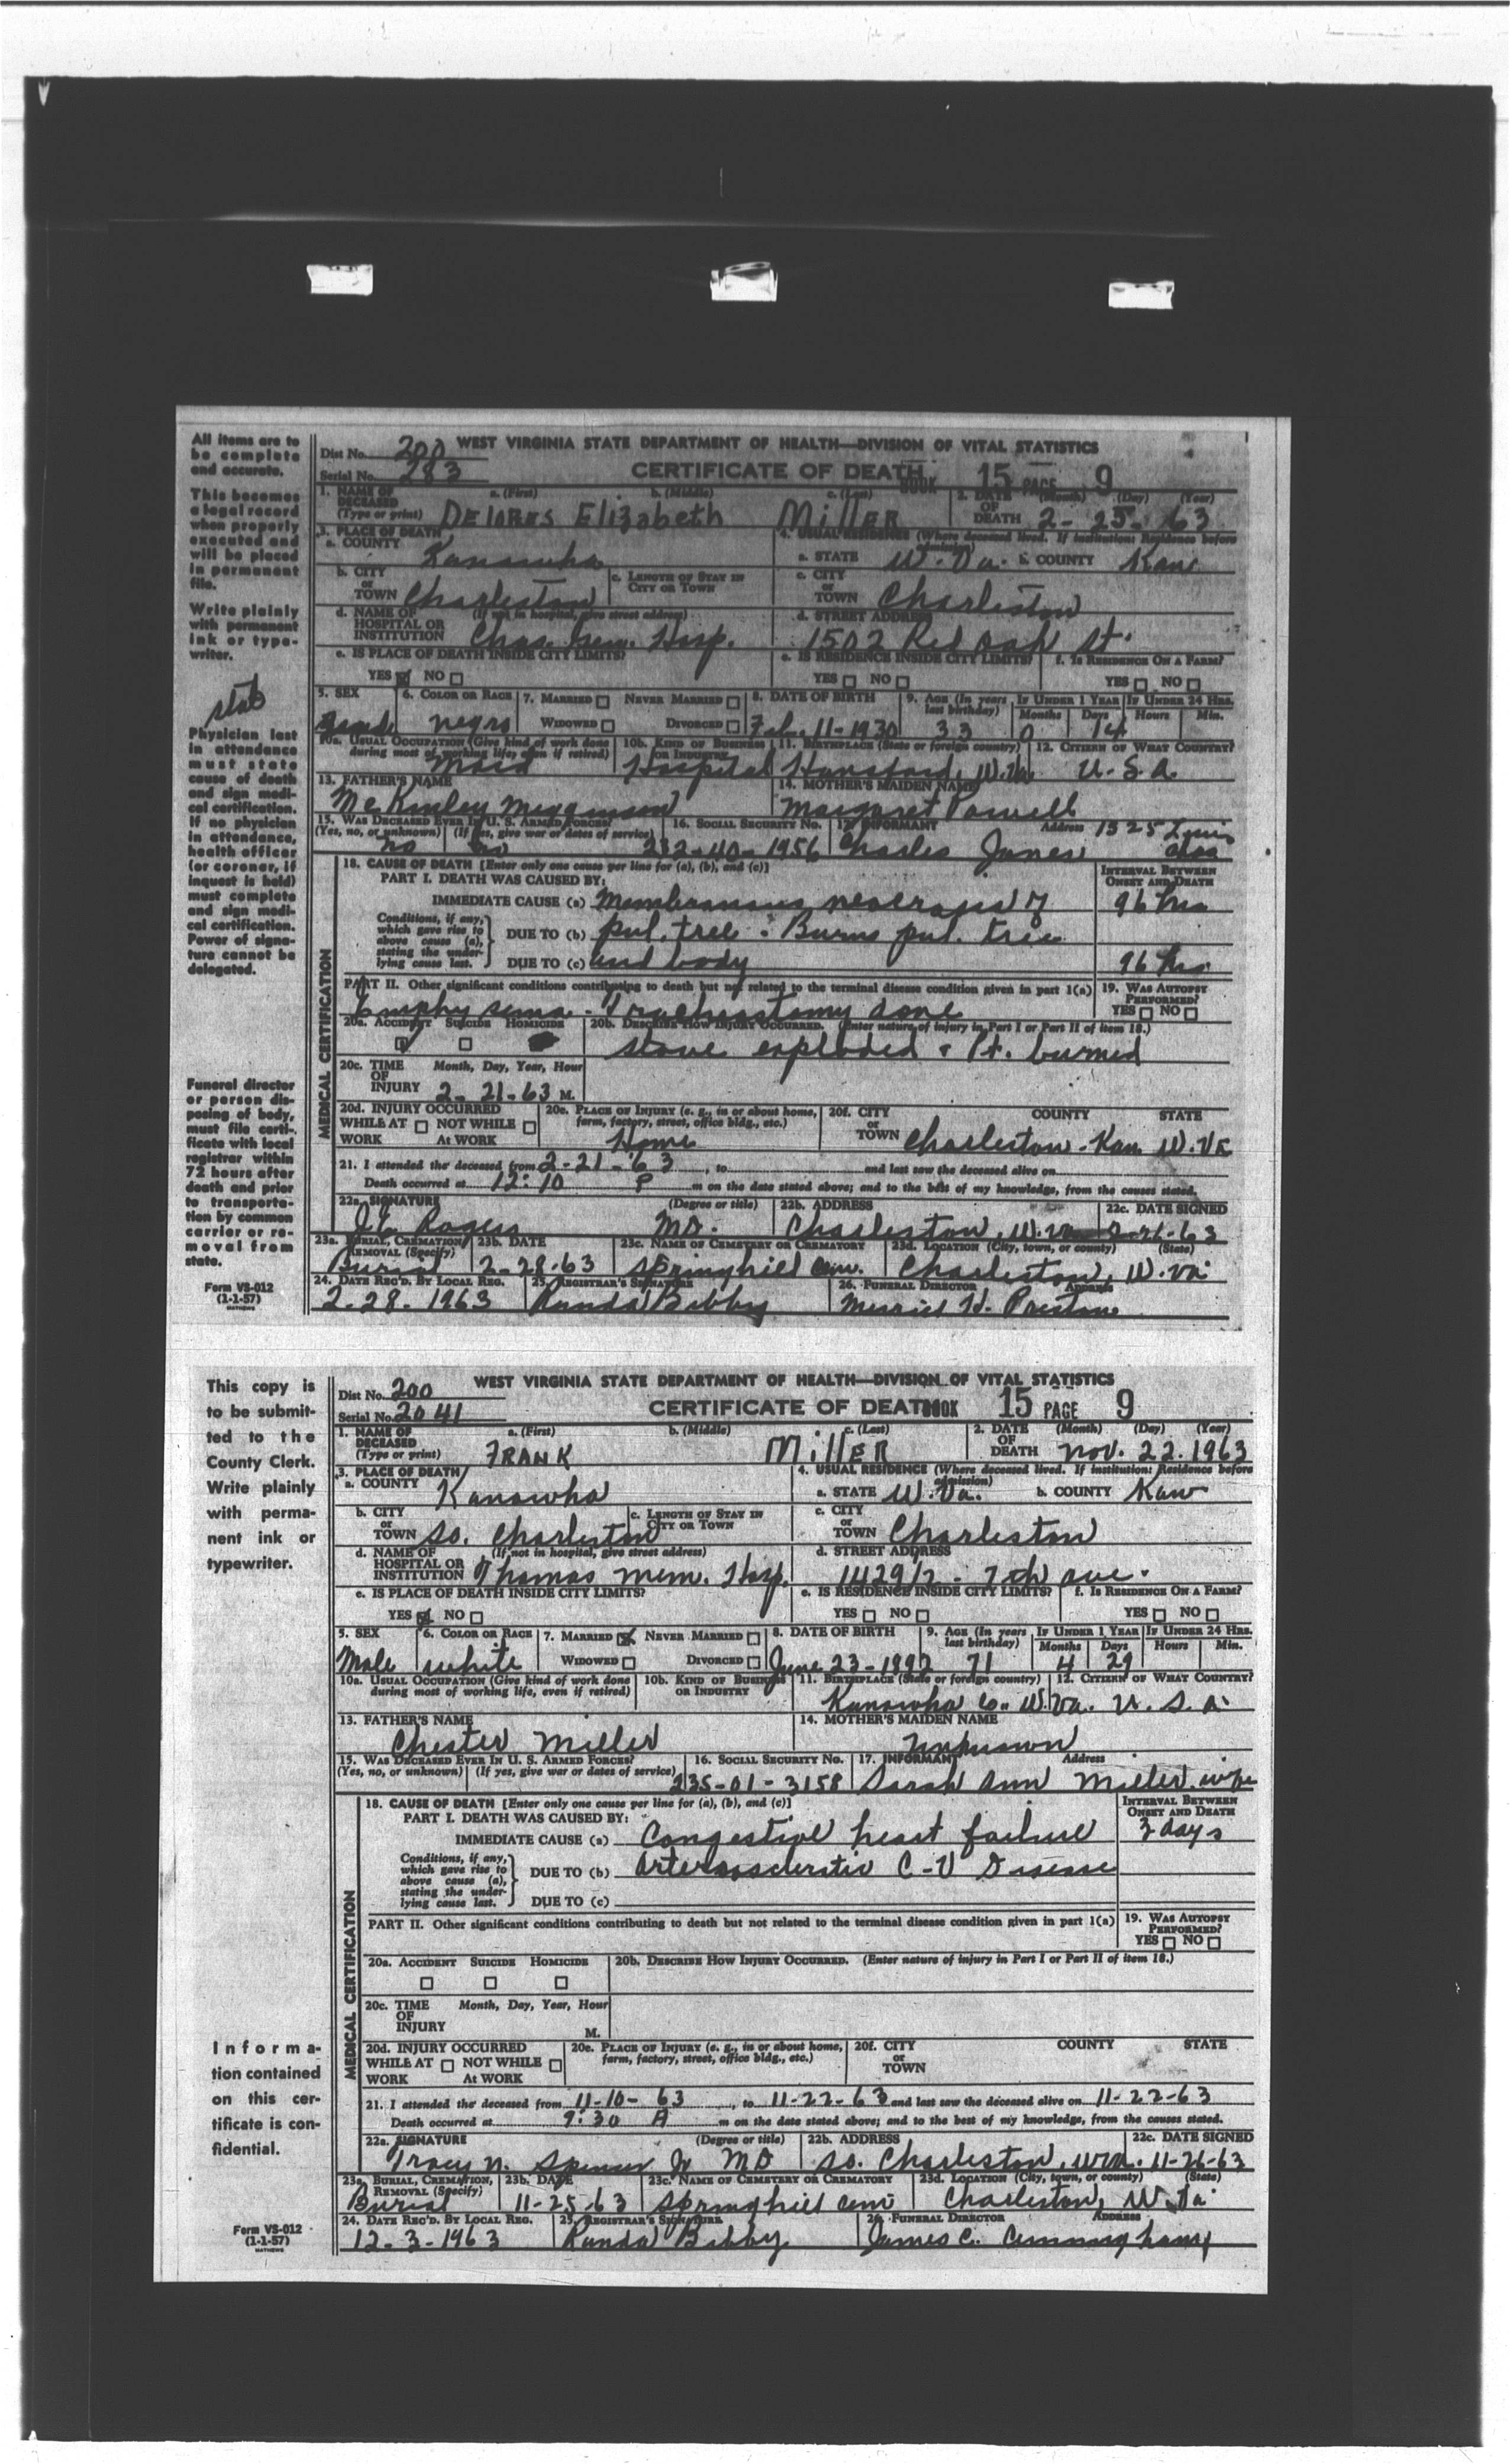 All items are to be complete and accurate.
This becomes a legal record when properly executed and will be placed in permanent file.
Write plainly with permanent ink or typewriter.
Physician last in attendance must state cause of death and sign medical certification. If no physician in attendance, health officer (or coroner, if inquest is held) must complete and sign medical certification. Power of signature cannot be delegated.
Funeral director or person disposing of body, must file certificate with local registrar within 72 hours after death and prior to transportation by common carrier or removal from state.
Form VS-012
(1-1-57)
Dist No. 200 WEST VIRGINIA STATE DEPARTMENT OF HEALTH—DIVISION OF VITAL STATISTICS
Serial No. 283 CERTIFICATE OF DEATH BOOK 15 PAGE 9
1. NAME OF DECEASED (Type or print) a. (First) b. (Middle) c. (Last) 2. DATE OF DEATH (Month) (Day) (Year)
DElORES ElizabEth MillER 2-25-63
3. PLACE OF DEATH 4. USUAL RESIDENCE (Where deceased lived. If institution: Residence before admission)
a. COUNTY Kanawha a. STATE W. Va. b. COUNTY Kan
b. CITY or TOWN Charleston c. LENGTH OF STAY IN CITY OR TOWN c. CITY or TOWN Charleston
d. NAME OF HOSPITAL OR INSTITUTION (If not in hospital, give street address) Chas. Gen. Hosp. d. STREET ADDRESS 1502 Red Oak St.
e. IS PLACE OF DEATH INSIDE CITY LIMITS? e. IS RESIDENCE INSIDE CITY LIMITS? f. IS RESIDENCE ON A FARM?
YES NO YES NO YES NO
5. SEX 6. COLOR OR RACE 7. MARRIED NEVER MARRIED 8. DATE OF BIRTH 9. AGE (In years last birthday) IF UNDER 1 YEAR IF UNDER 24 HRS.
WIDOWED DIVORCED Months Days Hours Min.
negro Feb. 11-1930 33 0 14
10a. USUAL OCCUPATION (Give kind of work done during most of working life, even if retired) 10b. KIND OF BUSINESS OR INDUSTRY 11. BIRTHPLACE (State or foreign country) 12. CITIZEN OF WHAT COUNTRY?
Maid Hospital Hansford, W. Va. U. S. A.
13. FATHER'S NAME 14. MOTHER'S MAIDEN NAME
McKinley Margaret Powell
15. WAS DECEASED EVER IN U. S. ARMED FORCES? (Yes, no, or unknown) (If yes, give war or dates of service) 16. SOCIAL SECURITY No. 17. INFORMANT Address
no no 232-40-1956 Charles Jones 1325
18. CAUSE OF DEATH [Enter only one cause per line for (a), (b), and (c)] INTERVAL BETWEEN ONSET AND DEATH
PART I. DEATH WAS CAUSED BY:
IMMEDIATE CAUSE (a) Membranous necrosis of 96 hrs
Conditions, if any, which gave rise to above cause (a), stating the underlying cause last.
DUE TO (b) pul. tree - Burns pul. tree
DUE TO (c) and body 96 hrs
PART II. Other significant conditions contributing to death but not related to the terminal disease condition given in part 1(a) 19. WAS AUTOPSY PERFORMED? YES NO
Emphysema - Tracheostomy done
20a. ACCIDENT SUICIDE HOMICIDE 20b. DESCRIBE HOW INJURY OCCURRED. (Enter nature of injury in Part I or Part II of item 18.)
Stove exploded & Pt. burned
20c. TIME OF INJURY Month, Day, Year, Hour
2-21-63 M.
20d. INJURY OCCURRED WHILE AT WORK NOT WHILE AT WORK 20e. PLACE OF INJURY (e. g., in or about home, farm, factory, street, office bldg., etc.) 20f. CITY or TOWN COUNTY STATE
Home Charleston - Kan. W. Va
21. I attended the deceased from 2-21-63, to and last saw the deceased alive on
Death occurred at 12:10 P m on the date stated above; and to the best of my knowledge, from the causes stated.
22a. SIGNATURE (Degree or title) 22b. ADDRESS 22c. DATE SIGNED
Rogers MD. Charleston, W. Va 2-26-63
23a. BURIAL, CREMATION, REMOVAL (Specify) 23b. DATE 23c. NAME OF CEMETERY OR CREMATORY 23d. LOCATION (City, town, or county) (State)
Burial 2-28-63 Springhill Cem. Charleston, W. Va.
24. DATE REC'D. BY LOCAL REG. 25. REGISTRAR'S SIGNATURE 26. FUNERAL DIRECTOR ADDRESS
2-28-1963 Randa Bibby H. Preston
MEDICAL CERTIFICATION
This copy is to be submitted to the County Clerk. Write plainly with permanent ink or typewriter.
Information contained on this certificate is confidential.
Form VS-012
(1-1-57)
Dist No. 200 WEST VIRGINIA STATE DEPARTMENT OF HEALTH—DIVISION OF VITAL STATISTICS
Serial No. 2041 CERTIFICATE OF DEATH BOOK 15 PAGE 9
1. NAME OF DECEASED (Type or print) a. (First) b. (Middle) c. (Last) 2. DATE OF DEATH (Month) (Day) (Year)
FRANK MillER Nov. 22. 1963
3. PLACE OF DEATH 4. USUAL RESIDENCE (Where deceased lived. If institution: Residence before admission)
a. COUNTY Kanawha a. STATE W. Va. b. COUNTY Kan
b. CITY or TOWN So. Charleston c. LENGTH OF STAY IN CITY OR TOWN c. CITY or TOWN Charleston
d. NAME OF HOSPITAL OR INSTITUTION (If not in hospital, give street address) Thomas Mem. Hosp. d. STREET ADDRESS 1429 1/2 - 7th ave.
e. IS PLACE OF DEATH INSIDE CITY LIMITS? e. IS RESIDENCE INSIDE CITY LIMITS? f. IS RESIDENCE ON A FARM?
YES NO YES NO YES NO
5. SEX 6. COLOR OR RACE 7. MARRIED NEVER MARRIED 8. DATE OF BIRTH 9. AGE (In years last birthday) IF UNDER 1 YEAR IF UNDER 24 HRS.
WIDOWED DIVORCED Months Days Hours Min.
Male white June 23-1892 71 4 29
10a. USUAL OCCUPATION (Give kind of work done during most of working life, even if retired) 10b. KIND OF BUSINESS OR INDUSTRY 11. BIRTHPLACE (State or foreign country) 12. CITIZEN OF WHAT COUNTRY?
Kanawha Co. W. Va. U. S. A.
13. FATHER'S NAME 14. MOTHER'S MAIDEN NAME
Chester Miller Unknown
15. WAS DECEASED EVER IN U. S. ARMED FORCES? (Yes, no, or unknown) (If yes, give war or dates of service) 16. SOCIAL SECURITY No. 17. INFORMANT Address
235-01-3158 Sarah Ann Miller, wife
18. CAUSE OF DEATH [Enter only one cause per line for (a), (b), and (c)] INTERVAL BETWEEN ONSET AND DEATH
PART I. DEATH WAS CAUSED BY:
IMMEDIATE CAUSE (a) Congestive heart failure 3 days
Conditions, if any, which gave rise to above cause (a), stating the underlying cause last.
DUE TO (b) Arteriosclerotic C-V Disease
DUE TO (c)
PART II. Other significant conditions contributing to death but not related to the terminal disease condition given in part 1(a) 19. WAS AUTOPSY PERFORMED? YES NO
20a. ACCIDENT SUICIDE HOMICIDE 20b. DESCRIBE HOW INJURY OCCURRED. (Enter nature of injury in Part I or Part II of item 18.)
20c. TIME OF INJURY Month, Day, Year, Hour
M.
20d. INJURY OCCURRED WHILE AT WORK NOT WHILE AT WORK 20e. PLACE OF INJURY (e. g., in or about home, farm, factory, street, office bldg., etc.) 20f. CITY or TOWN COUNTY STATE
21. I attended the deceased from 11-10-63, to 11-22-63 and last saw the deceased alive on 11-22-63
Death occurred at 9:30 A m on the date stated above; and to the best of my knowledge, from the causes stated.
22a. SIGNATURE (Degree or title) 22b. ADDRESS 22c. DATE SIGNED
Tracy N. Spencer Jr MD So. Charleston, W. Va. 11-26-63
23a. BURIAL, CREMATION, REMOVAL (Specify) 23b. DATE 23c. NAME OF CEMETERY OR CREMATORY 23d. LOCATION (City, town, or county) (State)
Burial 11-25-63 Springhill Cem Charleston, W. Va.
24. DATE REC'D. BY LOCAL REG. 25. REGISTRAR'S SIGNATURE 26. FUNERAL DIRECTOR ADDRESS
12-3-1963 Randa Bibby James C. Cunningham
MEDICAL CERTIFICATION